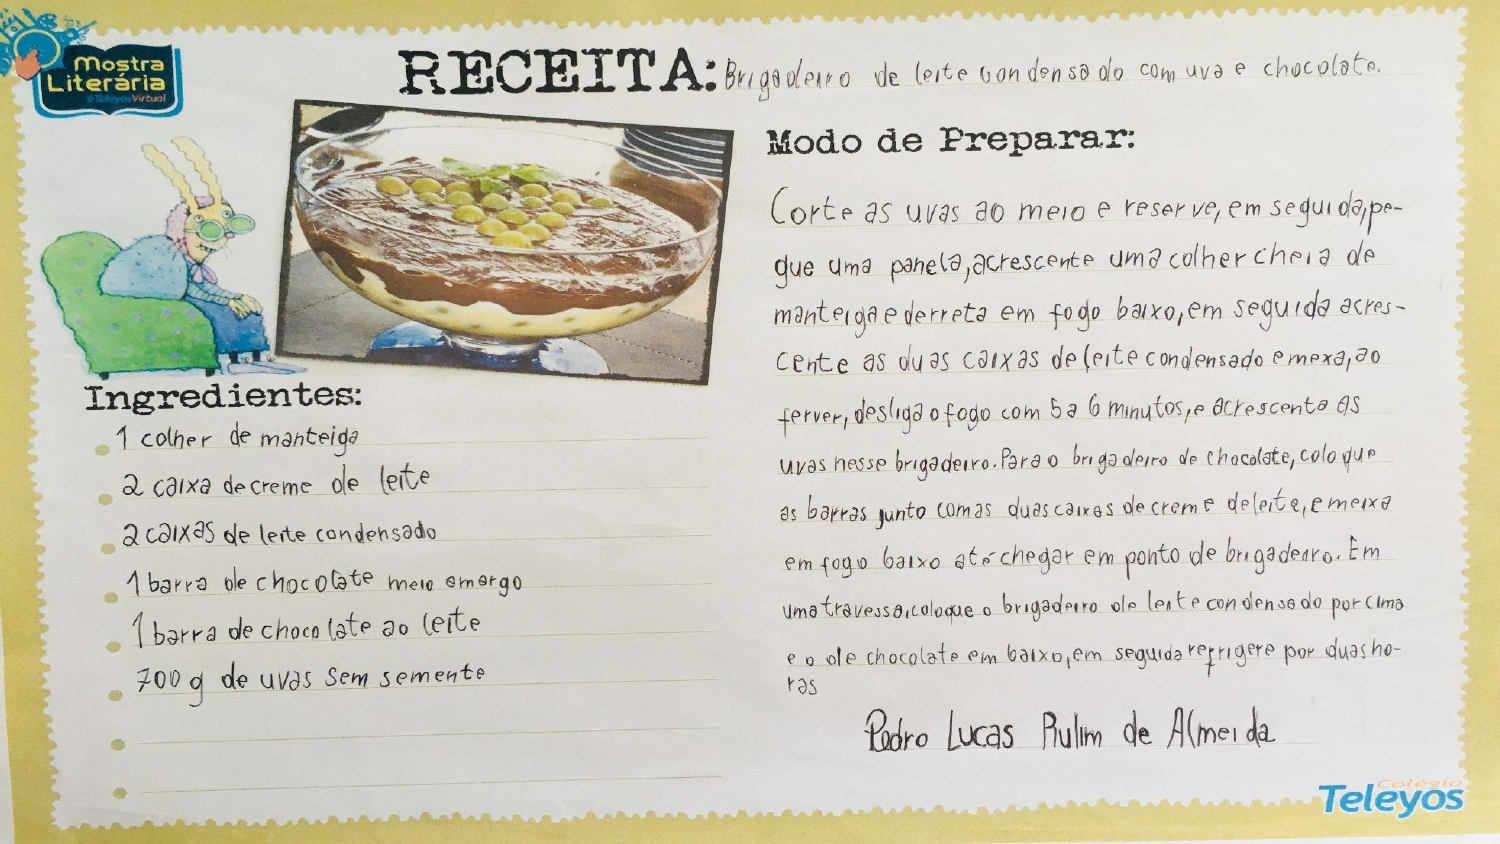 Mostra
Literária
#TeleyosVirtual
RECEITA: Brigadeiro de leite condensado com uva e chocolate.
Ingredientes:
1 colher de manteiga
2 caixa de creme de leite
2 caixas de leite condensado
1 barra de chocolate meio amargo
1 barra de chocolate ao leite
700 g de uvas sem semente
Modo de Preparar:
Corte as uvas ao meio e reserve, em seguida, pe-
gue uma panela, acrescente uma colher cheia de
manteiga e derreta em fogo baixo, em seguida acres-
cente as duas caixas de leite condensado e mexa, ao
ferver, desliga o fogo com 5 a 6 minutos, e acrescenta as
uvas nesse brigadeiro. Para o brigadeiro de chocolate, coloque
as barras junto com as duas caixas de creme de leite, e meixa
em fogo baixo até chegar em ponto de brigadeiro. Em
uma travessa, coloque o brigadeiro de leite condensado por cima
e o de chocolate em baixo, em seguida refrigere por duas ho-
ras
Pedro Lucas Rulim de Almeida
Colégio
Teleyos